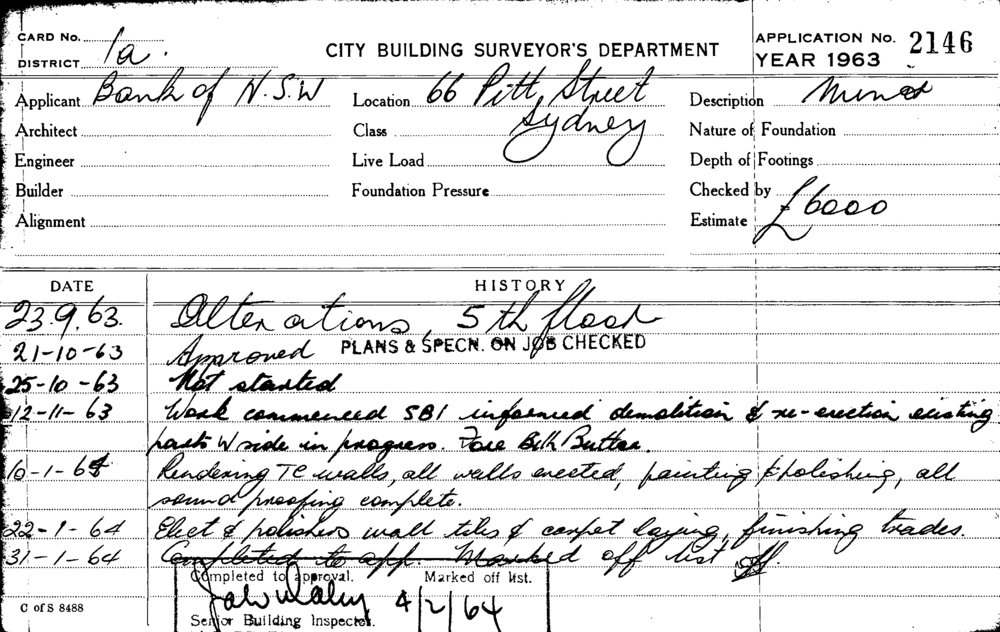 CARD No.
DISTRICT 1a.
CITY BUILDING SURVEYOR'S DEPARTMENT
APPLICATION No. 2146
YEAR 1963
Applicant Bank of N.S.W
Location 66 Pitt Street
Sydney
Description Minor
Architect
Class
Nature of Foundation
Engineer
Live Load
Depth of Footings
Builder
Foundation Pressure
Checked by
Alignment
Estimate £6000
DATE HISTORY
23.9.63. Alterations, 5th floor
21-10-63 Approved PLANS & SPECN. ON JOB CHECKED
25-10-63 Not started
12-11-63 Work commenced SBI informed demolition & re-erection existing
parts W side in progress.
10-1-64 Rendering TC walls, all walls erected, painting & polishing, all
sound proofing complete.
22-1-64 Elect & polishers wall tiles & carpet laying, finishing trades.
31-1-64 Completed to app. Marked off list
Completed to approval. Marked off list.
4/2/64
Senior Building Inspector.
C of S 8488